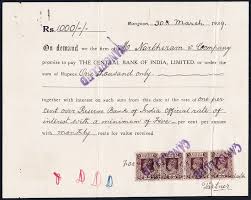 Rangoon, 30th March, 1939.
Rs. 1000/-/-
On demand we the firm of Narbheram & Company
promise to pay THE CENTRAL BANK OF INDIA, LIMITED, or order the
sum of Rupees One thousand only
CANCELLED
together with interest on such sum from this date at the rate of one per
cent over Reserve Bank of India official rate of
interest with a minimum of Five per cent per annum
with monthly rests for value received
For
CANCELLED
Partner